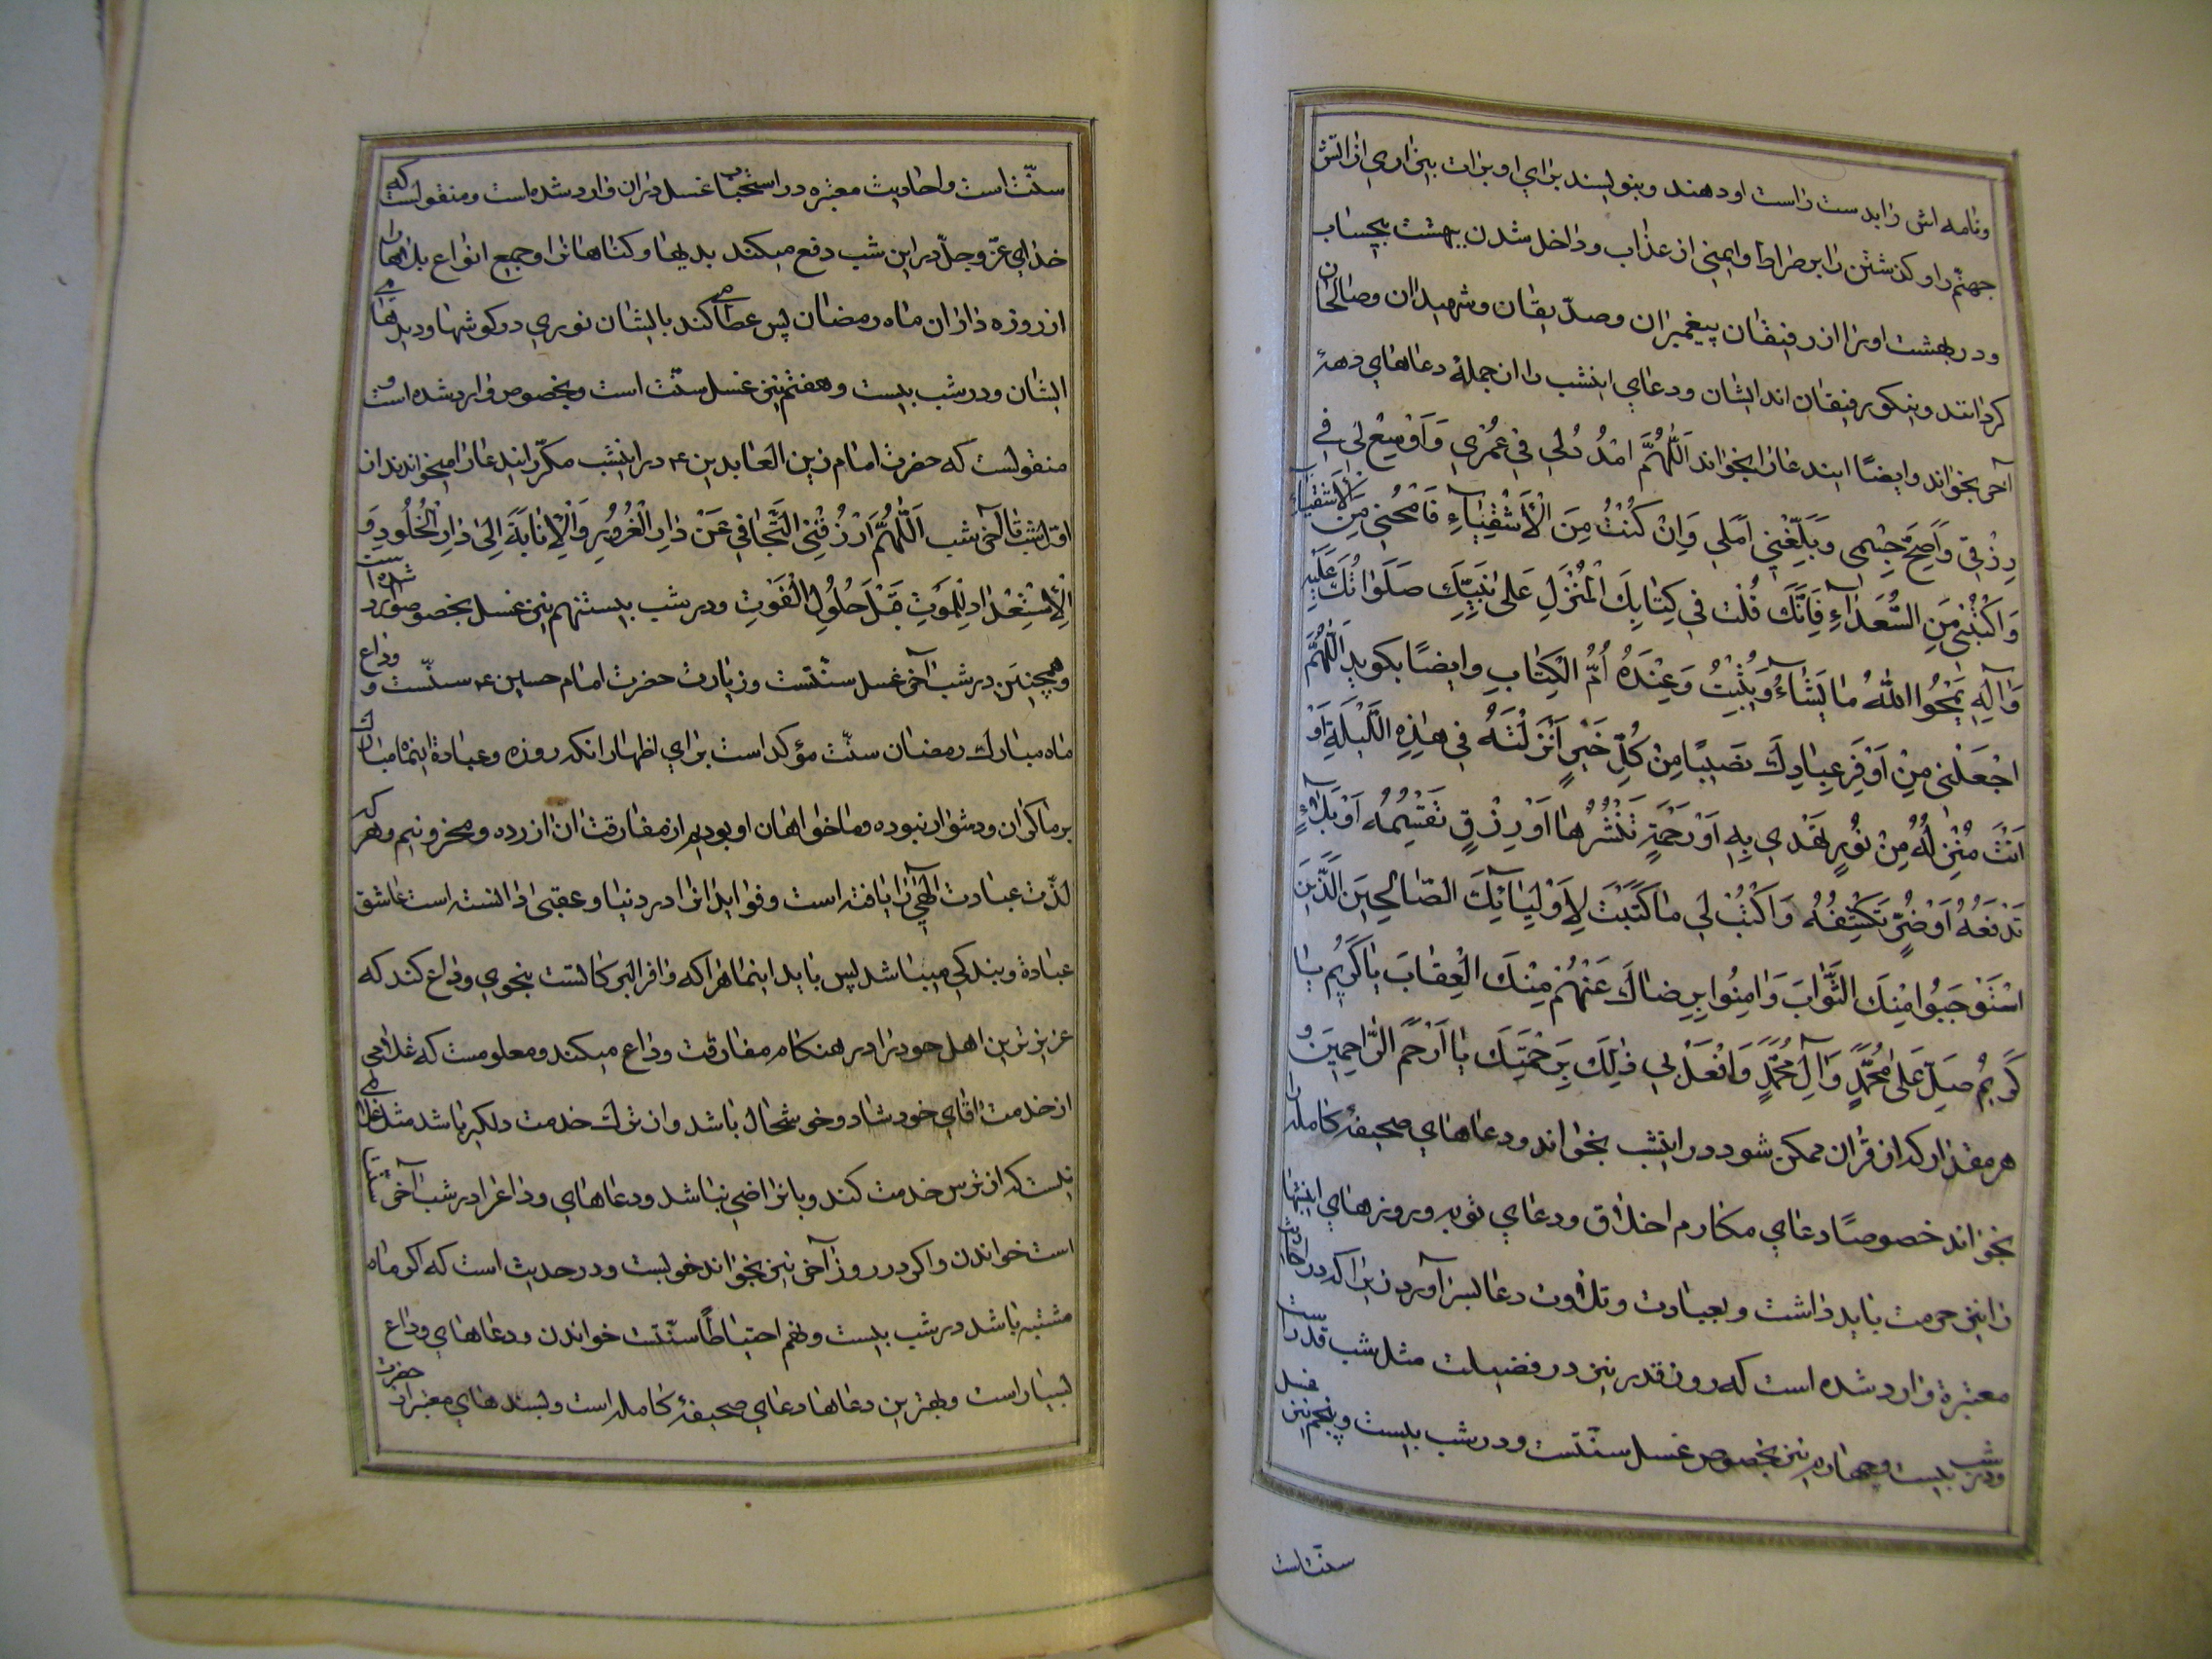 ونامه اش را بدست راست او دهند وبنویسند برای او برات بیزاری از اتش
جهنم را و کذشتن را بر صراط وایمنی از عذاب وداخل شدن بهشت بیحساب
ودر بهشت اورا از رفیقان پیغمبران وصدّیقان وشهیدان وصالحان
کردانند ونیکو رفیقان اند ایشان ودعای اینشب را از جملهٔ دعاهای دههٔ
آخر بخواند وایضًا ایندعا را بخواند اَللّٰهُمَّ امْدُدْ لی فی عُمْری وَاَوْسِعْ لی فی
رِزْقی وَاَصِحَّ جِسْمی وَبَلِّغْنی اَمَلی وَاِنْ کُنْتُ مِنَ الْاَشْقِیٰآءِ فَامْحُنی مِنَ الْاَشْقِیٰآءِ
وَاکْتُبْنی مِنَ السُّعَدٰآءِ فَاِنَّکَ قُلْتَ فی کِتٰابِکَ الْمُنْزَلِ عَلیٰ نَبِیِّکَ صَلَوٰاتُکَ عَلَیْهِ
وَآلِهِ یَمْحُوا اللّٰهُ مٰا یَشٰآءُ وَیُثْبِتُ وَعِنْدَهُ اُمُّ الْکِتٰابِ وایضًا بکوید اَللّٰهُمَّ
اجْعَلْنی مِنْ اَوْفَرِ عِبٰادِکَ نَصیبًا مِنْ کُلِّ خَیْرٍ اَنْزَلْتَهُ فی هٰذِهِ اللَّیْلَةِ اَوْ
اَنْتَ مُنْزِلُهُ مِنْ نُورٍ تَهْدی بِهِ اَوْ رَحْمَةٍ تَنْشُرُهٰا اَوْ رِزْقٍ تَقْسِمُهُ اَوْ بَلٰآءٍ
تَدْفَعُهُ اَوْ ضُرٍّ تَکْشِفُهُ وَاکْتُبْ لی مٰا کَتَبْتَ لِاَوْلِیٰائِکَ الصّٰالِحینَ الَّذینَ
اسْتَوْجَبُوا مِنْکَ الثَّوٰابَ وَامِنُوا بِرِضٰاکَ عَنْهُمْ مِنْکَ الْعِقٰابَ یٰا کَریمُ یٰا
کَریمُ صَلِّ عَلیٰ مُحَمَّدٍ وَآلِ مُحَمَّدٍ وَافْعَلْ بی ذٰلِکَ بِرَحْمَتِکَ یٰا اَرْحَمَ الرّٰاحِمینَ و
هر مقدار که از قران ممکن شود در اینشب بخواند ودعاهای صحیفهٔ کامله را
بخواند خصوصًا دعای مکارم اخلاق ودعای توبه وروزهای اینشبها
را نیز حرمت باید داشت وبعبادت وتلاوت ودعا بسر آورد زیرا که در احادیث
معتبرة وارد شده است که روز قدر نیز در فضیلت مثل شب قدر است
ودر شب بیست وچهارم نیز بخصوص غسل سنّتست ودر شب بیست وپنجم نیز غسل
سنّت است
سنّت است واحادیث معتبره در استحباب غسل در ان وارد شده است ومنقولست که
خدای عزّ وجلّ در این شب دفع میکند بدیها وکناهانرا وجمیع انواع بلاها را
از روزه داران ماه رمضان پس عطا می کند بایشان نوری در کوشها ودیدهای
ایشان ودر شب بیست وهفتم نیز غسل سنّت است وبخصوص وارد شده است و
منقولست که حضرت امام زین العابدین ع در اینشب مکرّر ایندعا را میخواندند از
اوّل شب تا آخر شب اَللّٰهُمَّ ارْزُقْنِی التَّجٰافِیَ عَنْ دٰارِ الْغُرُورِ وَالْاِنٰابَةَ اِلیٰ دٰارِ الْخُلُودِ وَ
الْاِسْتِعْدٰادَ لِلْمَوْتِ قَبْلَ حُلُولِ الْفَوْتِ ودر شب بیست ونهم نیز غسل بخصوص وارد شده است
وهمچنین در شب آخر غسل سنّتست وزیارت حضرت امام حسین ع سنّتست و وداع
ماه مبارک رمضان سنّت مؤکد است برای اظهار انکه روزه وعبادة اینماه مبارک
بر ما کران ودشوار نبوده وما خواهان او بودیم از مفارقت ان ازرده ومحزونیم وهر که
لذّت عبادت الٰهی را یافته است وفواید انرا در دنیا وعقبی دانسته است عاشق
عبادة وبندکی میباشد پس باید اینماهرا که وافر البرکاتست بنحوی وداع کند که
عزیزترین اهل خود را در هنکام مفارقت وداع میکند ومعلومست که غلامی
از خدمت اقای خود شاد وخوشحال باشد واز ترک خدمت دلکیر باشد مثل غلامی
نیست که از ترس خدمت کند وبانراضی نباشد ودعاهای وداعرا در شب آخر سنّت
است خواندن واکر در روز آخر نیز بخواند خوبست ودر حدیث است که اکر ماه
مشتبه باشد در شب بیست ونهم احتیاطًا سنّتست خواندن ودعاهای وداع
بسیار است وبهترین دعاها دعای صحیفهٔ کامله است وبسندهای معتبر از حضرت